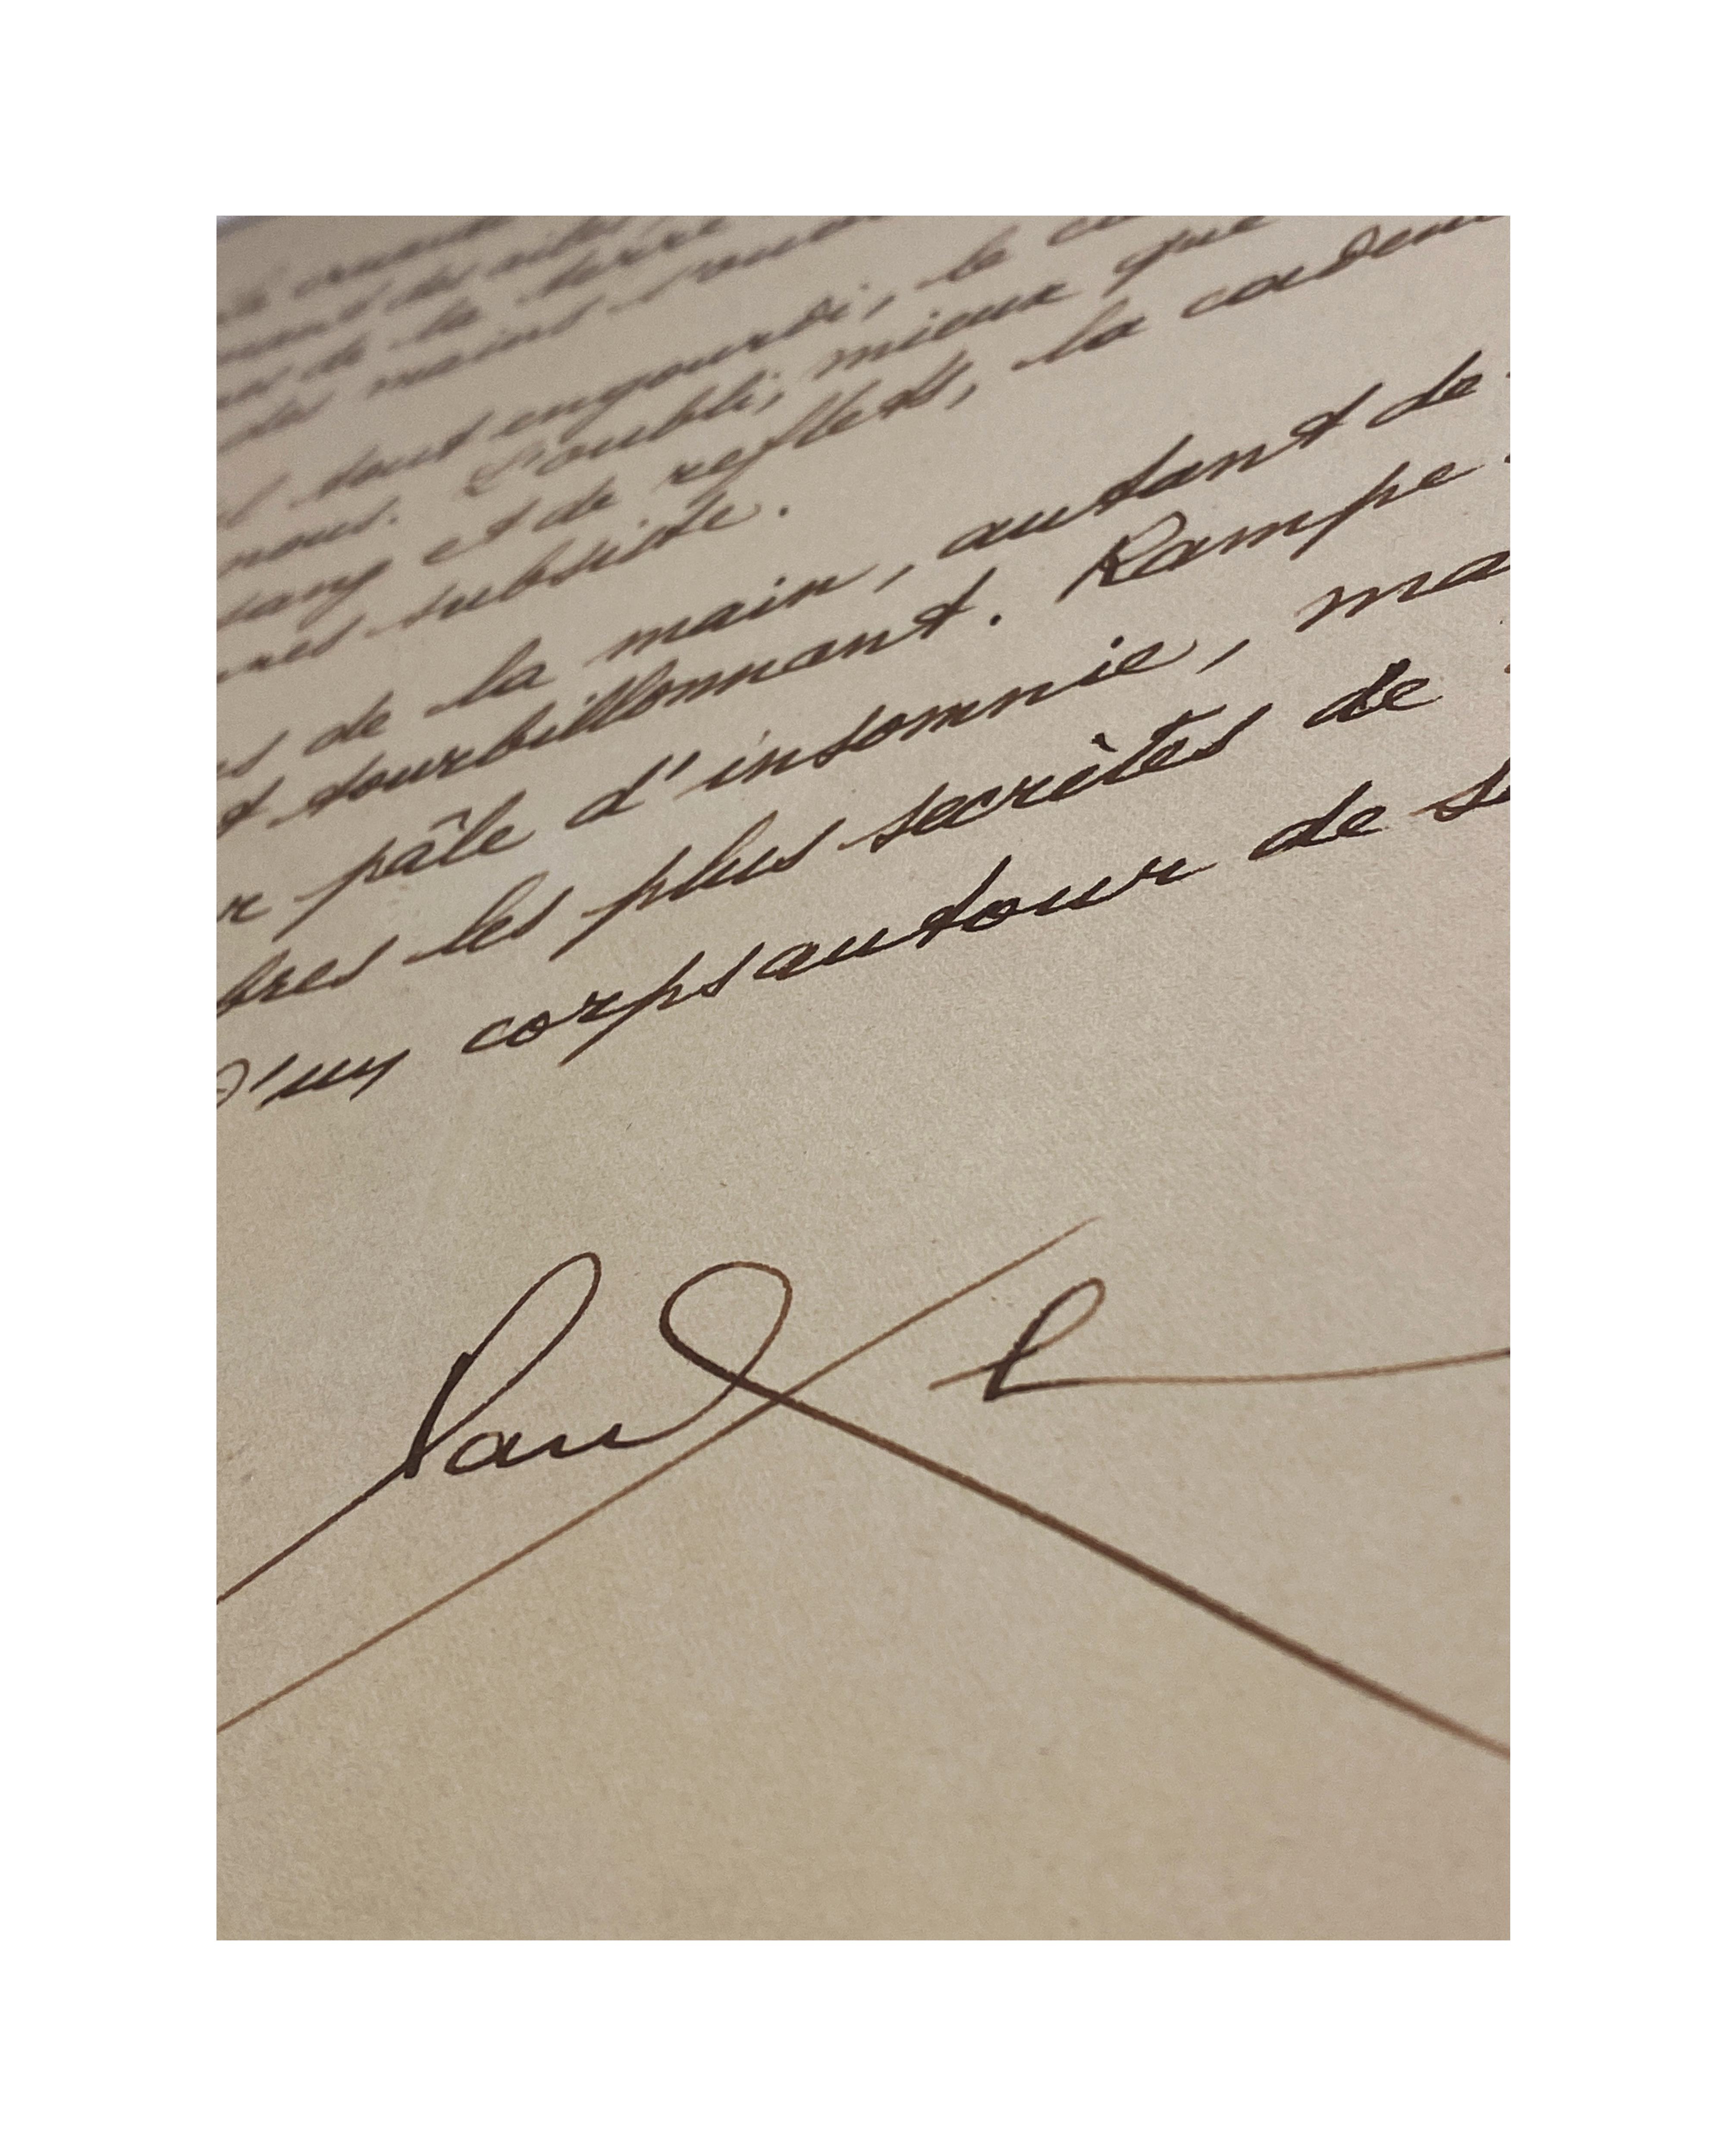 des ailes
de la terre
des mains
tout engourdi, le
nous. L'oubli, mieux que
sang et de reflets, la caden
res subsiste.
s de la main, autant de
t tourbillonnant. Rampe
r pâle d'insomnie, ma
bres les plus secrètes de
d'un corps autour de s
Paul E